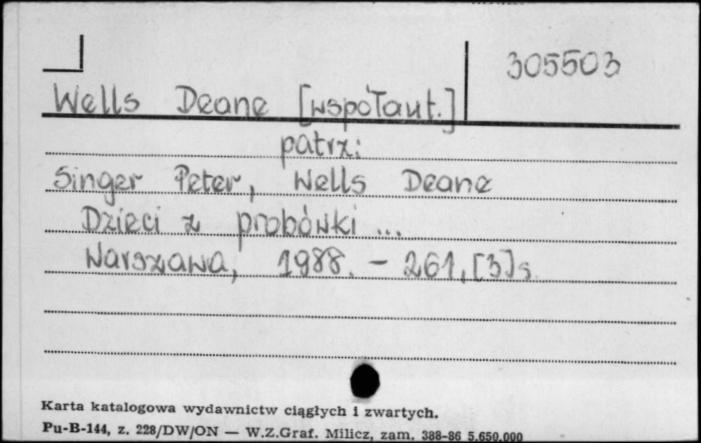 305503
Wells Deane [współaut.]
patrz:
Singer Peter, Wells Deane
Dzieci z probówki ...
Warszawa, 1988. - 261, [3] s.
Karta katalogowa wydawnictw ciągłych i zwartych.
Pu-B-144, z. 228/DW/ON — W.Z.Graf. Milicz, zam. 388-86 5.650.000